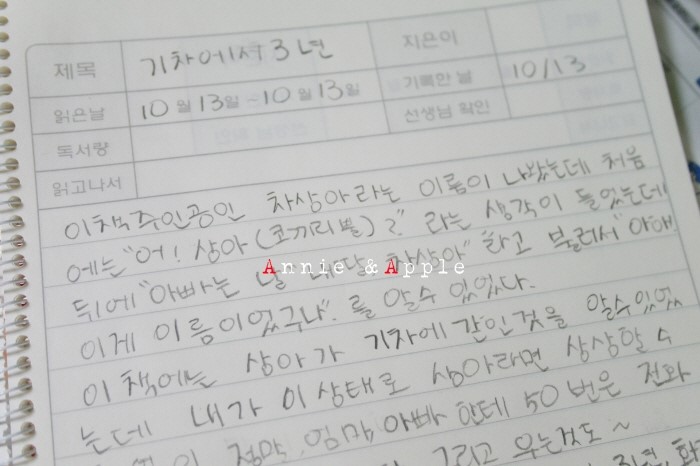 제목 기차에서 3년 지은이
읽은날 10월 13일 ~ 10월 13일 기록한 날 10/13
독서량 선생님 확인
읽고나서
이책주인공인 차상아라는 이름이 나왔는데 처음
에는 "어! 상아(코끼리뿔)?" 라는 생각이 들었는데
뒤에 "아빠는 널 차상아" 라고 불러서 "아애
이게 이름이었구나". 를 알수 있었다.
Annie & Apple
이 책에는 상아가 기차에 간인것을 알수있었
는데 내가 이상태로 상아라면 상상할 수
정막, 엄마, 아빠 한테 50번은 전화
그리고 우는것도~